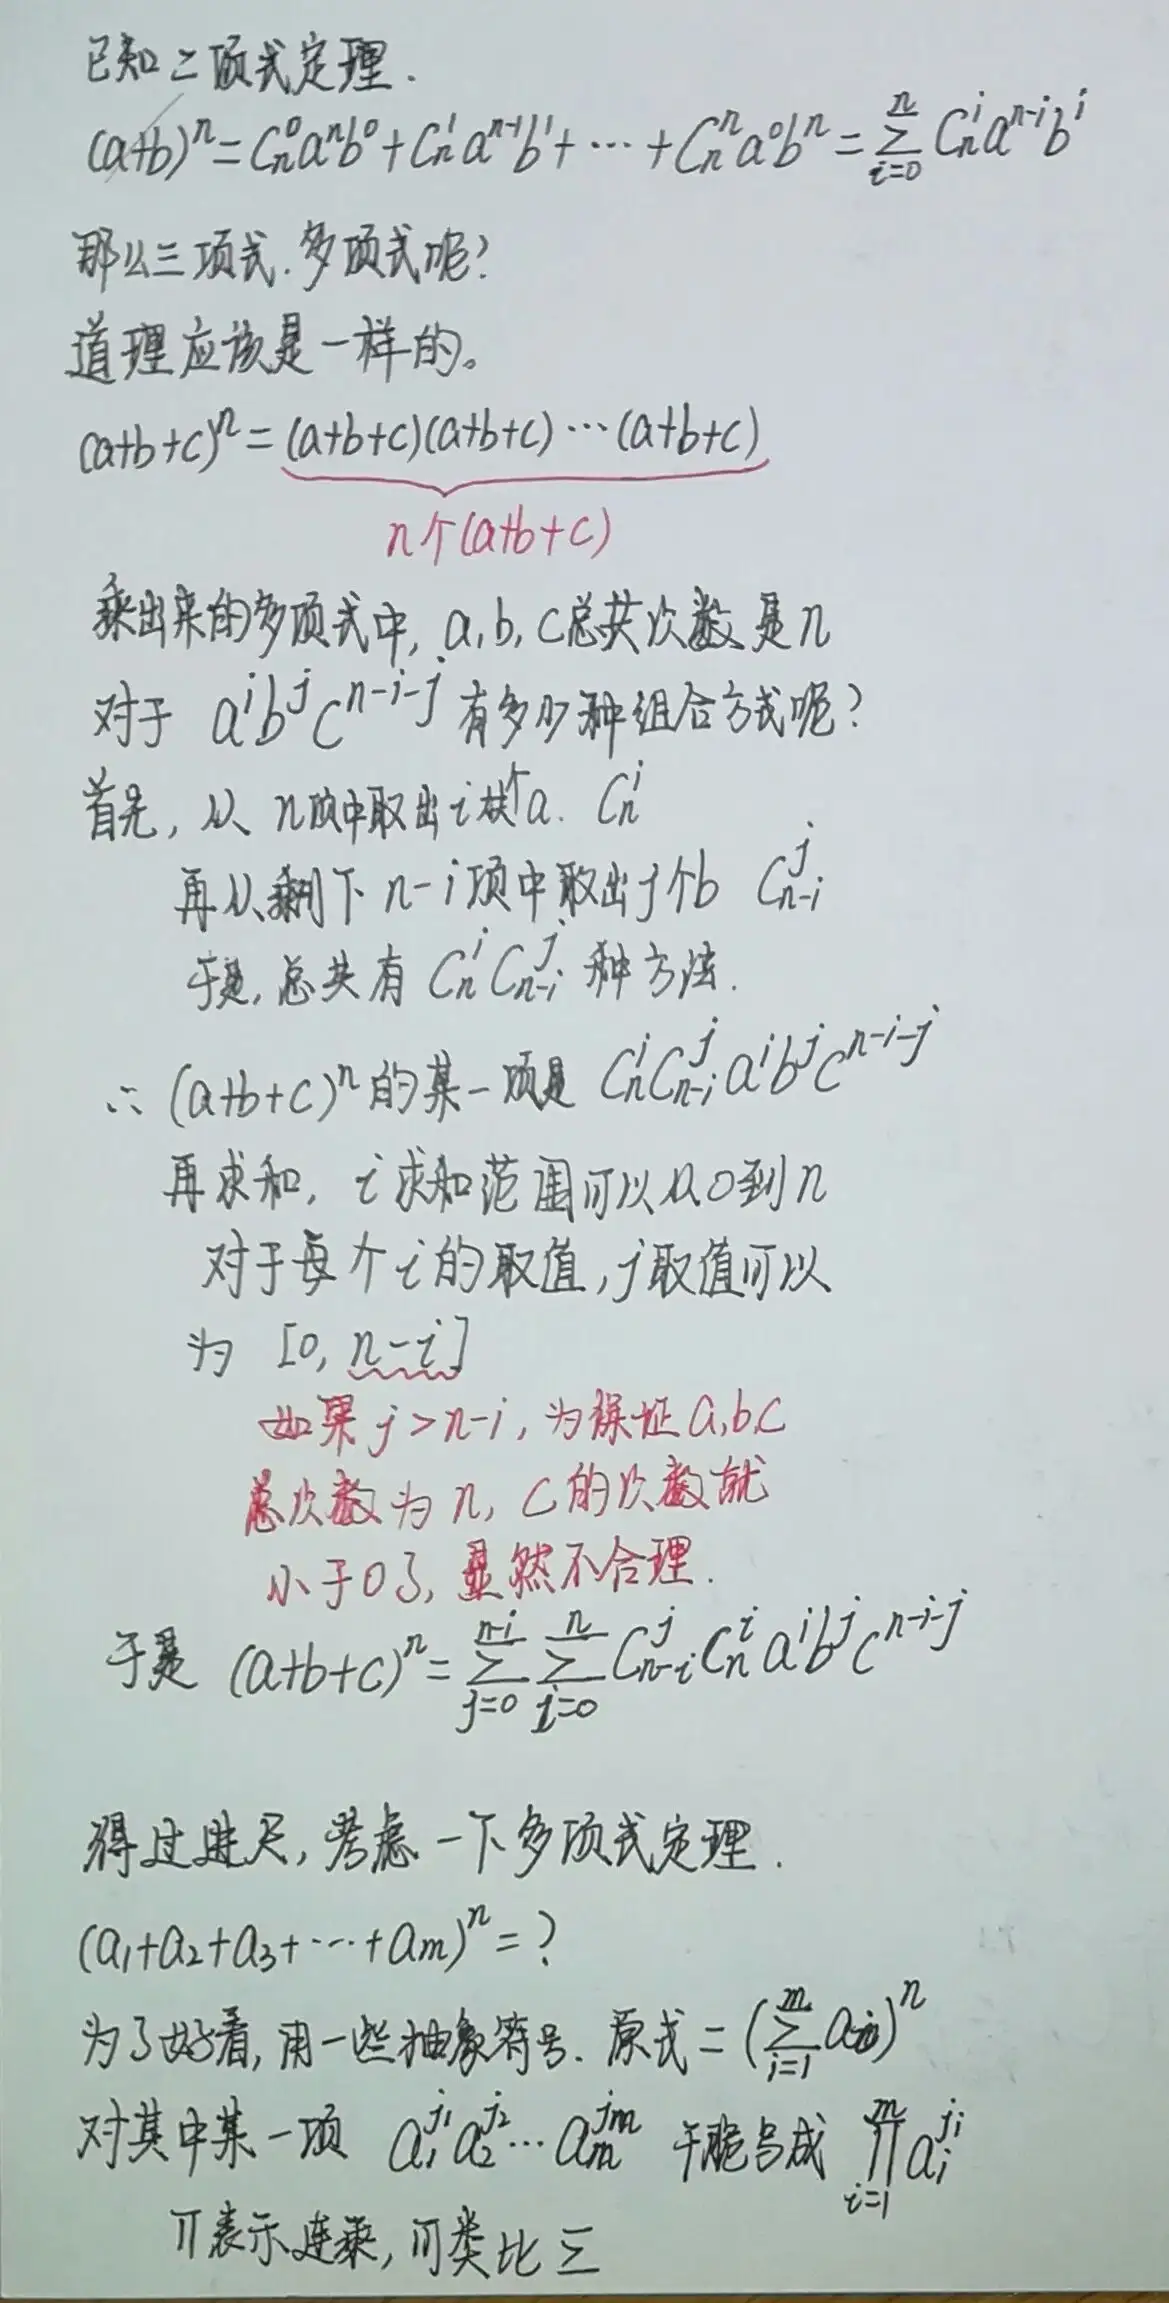 已知二项式定理.
(a+b)ⁿ=Cₙ⁰aⁿb⁰+Cₙ¹aⁿ⁻¹b¹+⋯+Cₙⁿa⁰bⁿ=∑_{i=0}^{n}Cₙⁱaⁿ⁻ⁱbⁱ
那么三项式.多项式呢?
道理应该是一样的。
(a+b+c)ⁿ=(a+b+c)(a+b+c)⋯(a+b+c)
n个(a+b+c)
乘出来的多项式中, a,b,c总共次数是n
对于 aⁱbʲcⁿ⁻ⁱ⁻ʲ 有多少种组合方式呢?
首先, 从n项中取出i个a. Cₙⁱ
再从剩下n-i项中取出j个b C_{n-i}^{j}
于是,总共有 CₙⁱC_{n-i}^{j} 种方法.
∴ (a+b+c)ⁿ的某一项是 CₙⁱC_{n-i}^{j}aⁱbʲcⁿ⁻ⁱ⁻ʲ
再求和, i求和范围可以从0到n
对于每个i的取值,j取值可以
为 [0, n-i]
如果j>n-i,为保证a,b,c
总次数为n, c的次数就
小于0了, 显然不合理.
于是 (a+b+c)ⁿ=∑_{j=0}^{n-i}∑_{i=0}^{n}C_{n-i}^{j}Cₙⁱaⁱbʲcⁿ⁻ⁱ⁻ʲ
得过进尺,考虑一下多项式定理.
(a₁+a₂+a₃+⋯+aₘ)ⁿ=?
为了好看,用一些抽象符号. 原式=(∑_{i=1}^{m}aᵢ)ⁿ
对其中某一项 a₁^{j₁}a₂^{j₂}⋯aₘ^{jₘ} 干脆写成 ∏_{i=1}^{m}aᵢ^{jᵢ}
∏表示连乘,可类比∑